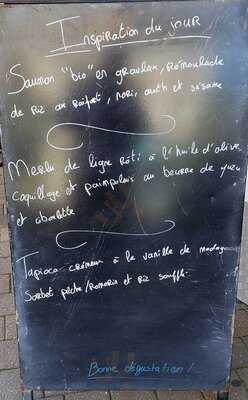 Inspiration du jour
Saumon "bio" en gravlax, Rémoulade
de Riz au Raifort, nori, aneth et sésame
Merlu de ligne rôti à l'huile d'olive
coquillage et pamplemousse au beurre de yuzu
et ciboulette
Tapioca crémeux à la vanille de madagascar
Sorbet pêche/Romarin et Riz soufflé.
Bonne dégustation!